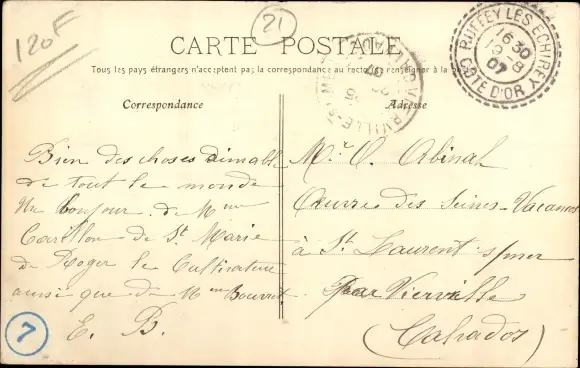 120F
21
CARTE POSTALE
Tous les pays étrangers n'acceptent pas la correspondance au recto, se renseigner à la
Correspondance
Adresse
RUFFEY LES ECHIREY
16 30
19 - 8
07
COTE D'OR
Bien des choses aimables
de tout le monde
Un bonjour de Mme
Carillon de St Marie
de Roger le Cultivateur
ainsi que de Mme Bouvret
E. B.
7
Mr A. Abinal
Œuvre des Seines-Vacances
à St Laurent s/mer
par Vierville
(Calvados)